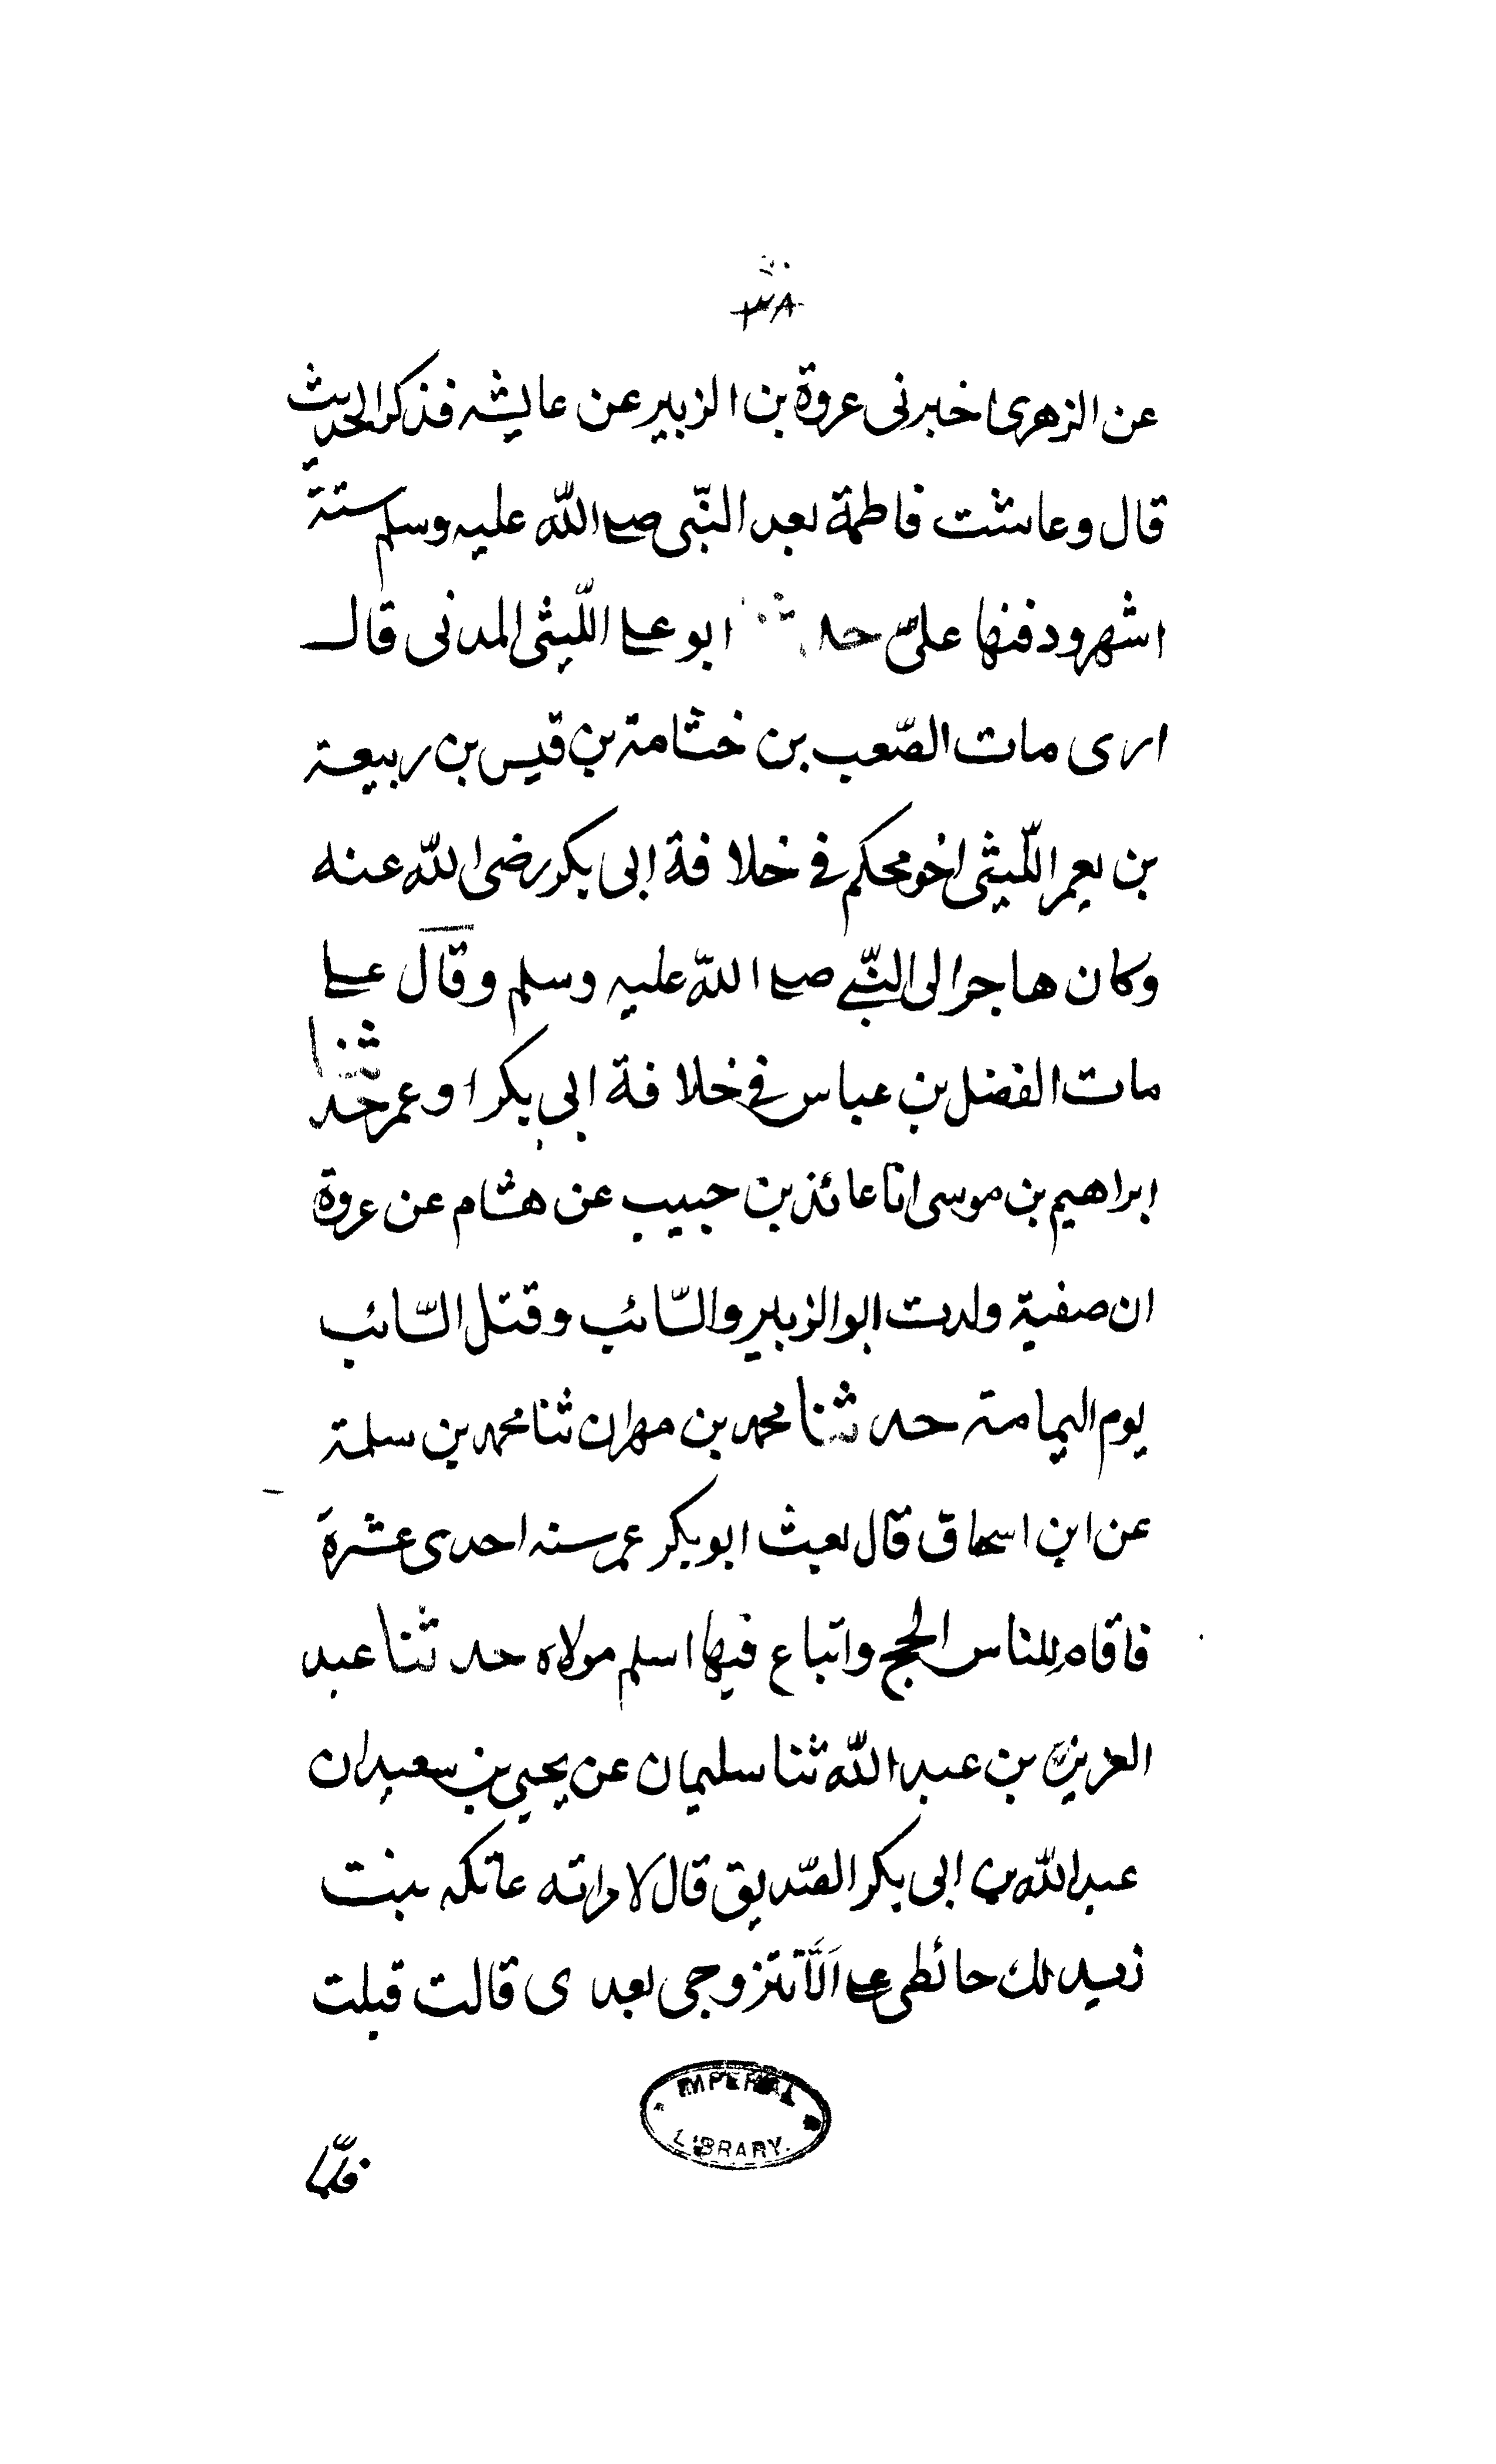 ٣٨
عن الزهرى اخبرنى عروة بن الزبير عن عايشه فذكر الحديث
قال وعاشت فاطمة بعد النّبى صلى الله عليه وسلم ستة
اشهر ودفنها علىّ حدثنا ابو على اللّيثى المدنى قال
ارى مات الصّعب بن خثامة بن قيس بن ربيعة
بن يعمر اللّيثى اخو محكم فى خلافة ابى بكر رضى الله عنه
وكان هاجر الى النّبى صلى الله عليه وسلم وقال على
مات الفضل بن عباس فى خلافة ابى بكر او عمر حدثنا
ابراهيم بن موسى انا عائذ بن حبيب عن هشام عن عروة
ان صفية ولدت ابو الزبير والسّائب وقتل السّائب
يوم اليمامة حدثنا محمد بن مهران ثنا محمد بن سلمة
عن ابن اسحاق قال بعث ابو بكر عمر سنه احدى عشرة
فاقاه للناس الحج واتباع فيها اسلم مولاه حدثنا عبد
العزيز بن عبد الله ثنا سليمان عن يحيى بن سعيد ان
عبد الله بن ابى بكر الصّديق قال لامراته عاتكه بنت
زيد لك حائطى على الّا تتزوجى بعدى قالت قبلت
IMPERIAL
LIBRARY.
فلمّا